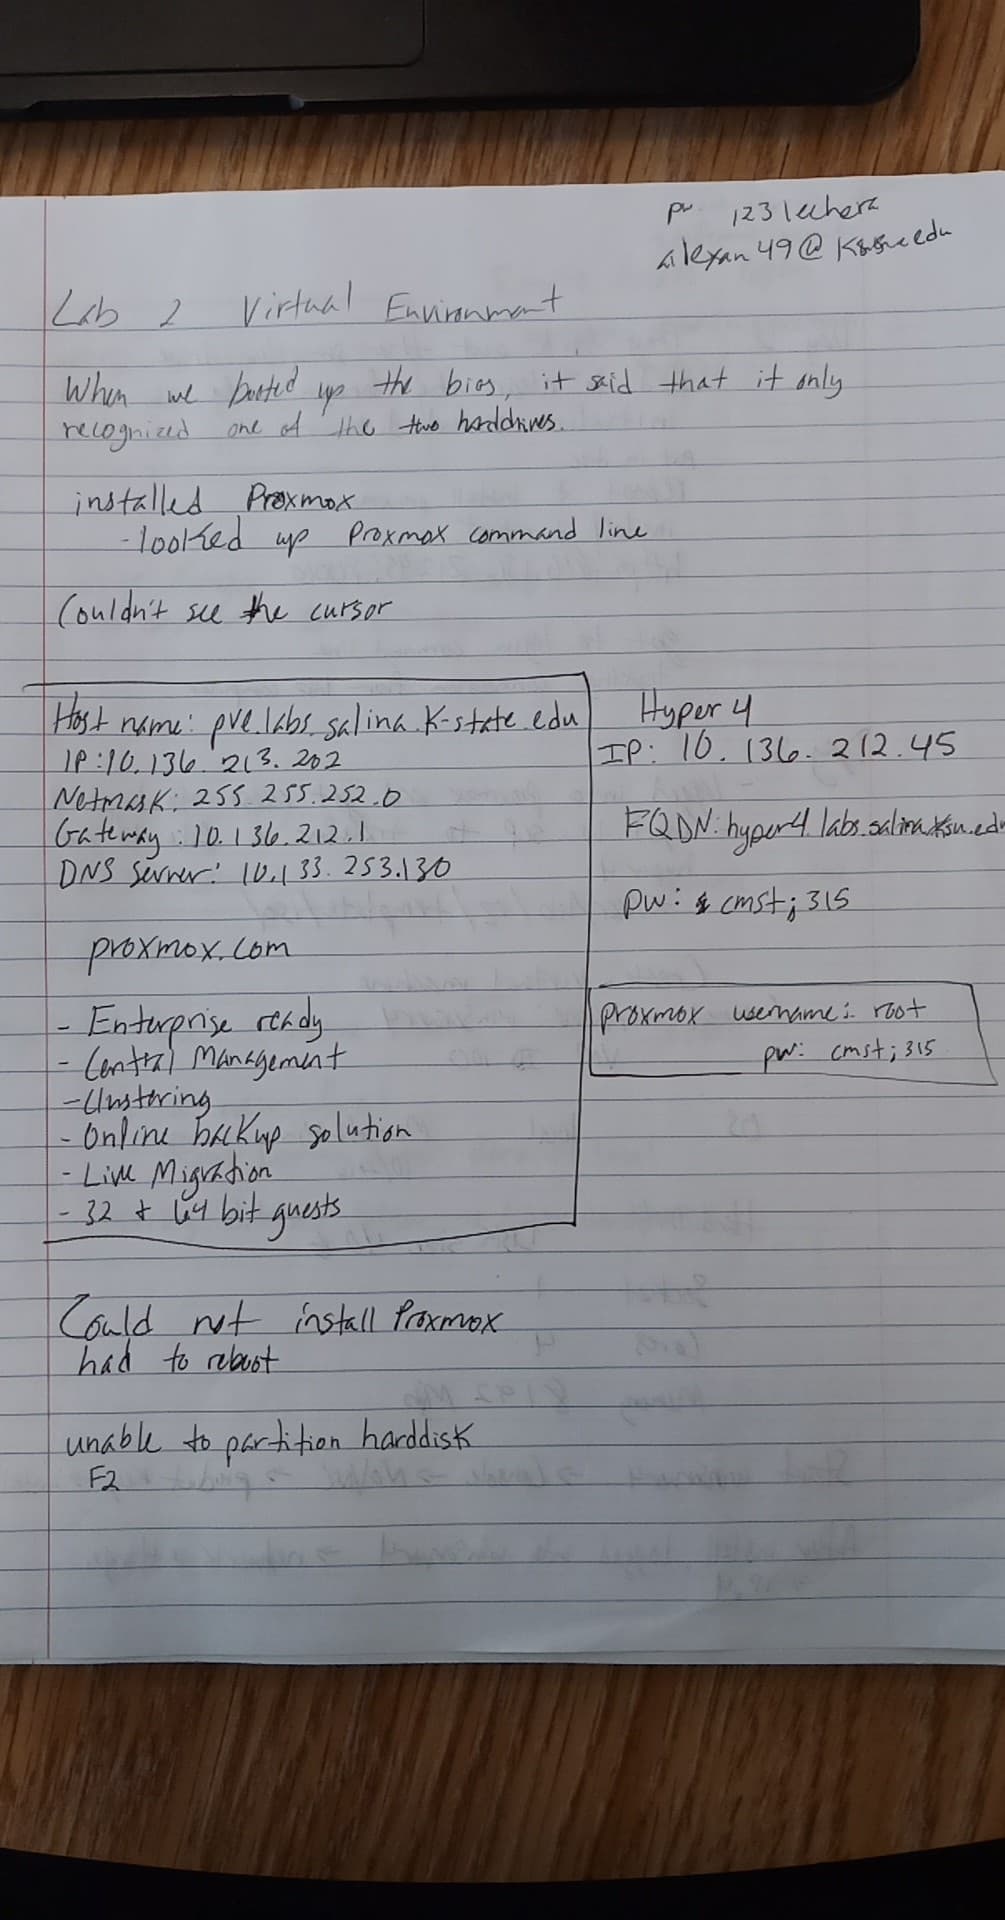 pw 123 lechera
alexan49@ksu.edu
Lab 2 Virtual Environment
When we booted up the bios, it said that it only
recognized one of the two harddrives.
installed Proxmox
- looked up Proxmox command line
Couldn't see the cursor
Host name: pve.labs.salina.k-state.edu
IP: 10.136.213.202
Netmask: 255.255.252.0
Gateway: 10.136.212.1
DNS Server: 10.133.253.130
proxmox.com
- Enterprise ready
- Central Management
- Clustering
- Online backup solution
- Live Migration
- 32 & 64 bit guests
Hyper 4
IP: 10.136.212.45
FQDN: hyper4.labs.salina.ksu.edu
pw: cmst;315
proxmox username: root
pw: cmst;315
Could not install Proxmox
had to reboot
unable to partition harddisk
F2